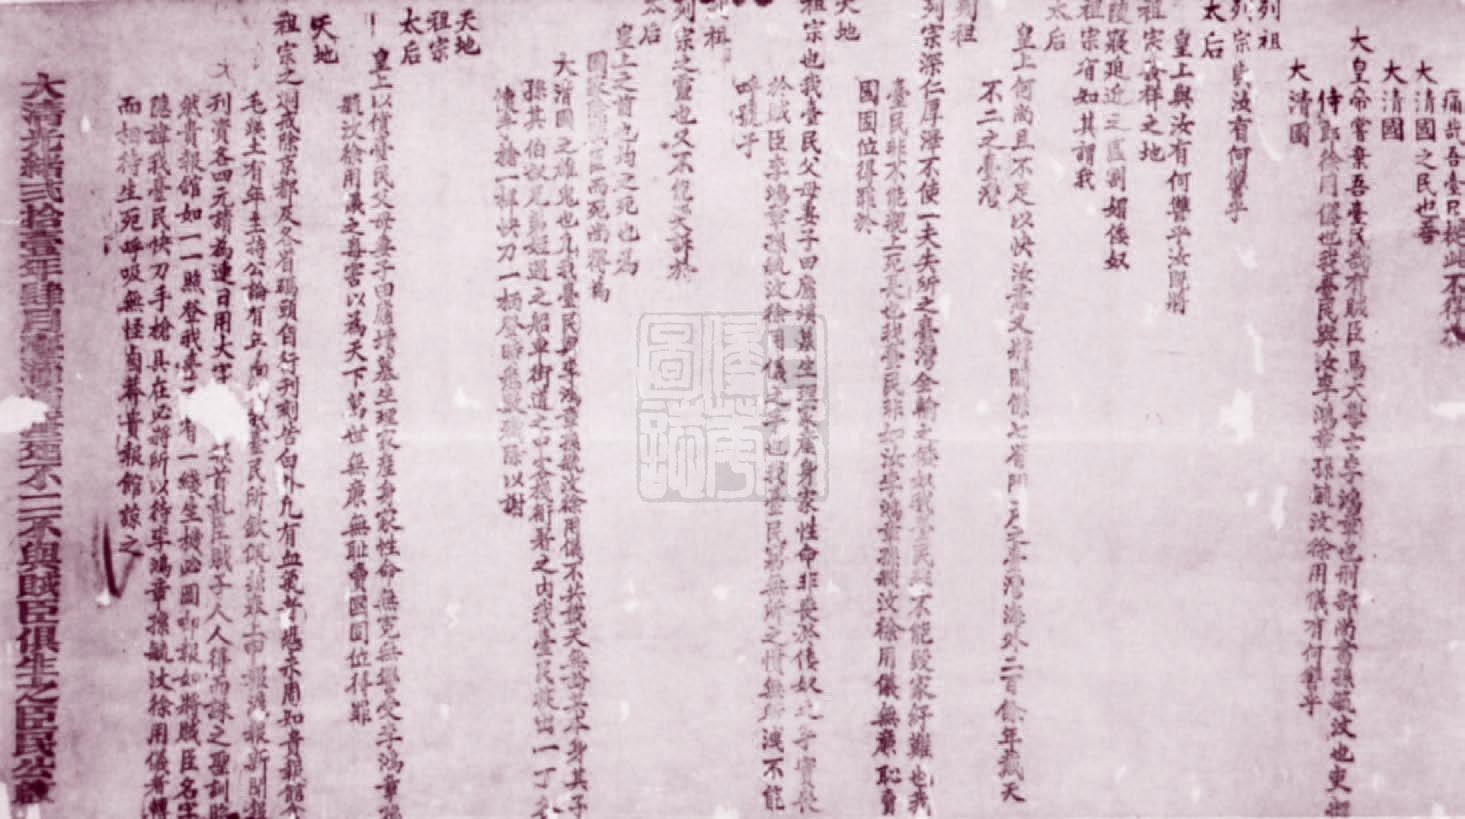 痛哉吾臺民從此不得為
大清國之民也吾
大清國
大皇帝嘗棄吾臺民哉有賊臣焉大學士李鴻章也刑部尚書孫毓汶也吏部
侍郎徐用儀也我臺民與汝李鴻章孫毓汶徐用儀有何讐乎
大清國
列祖
列宗與汝有何讐乎
太后
皇上與汝有何讐乎汝既將
祖宗發祥之地
陵寢逼近之區割媚倭奴
祖宗有知其謂我
太后
皇上何尚且不足以快汝意又將關係七省門戶之臺灣海外二百餘年戴天
不二之臺灣
列祖
列宗深仁厚澤不使一夫失所之臺灣全輸之倭奴我臺民
不能毀家紓難也我
臺民非不能親上死長也我臺民非如汝李鴻章孫毓汶徐用儀無廉恥賣
國固位得罪於
天地
祖宗也我臺民父母妻子田廬墳墓生理家產身家性命非喪於倭奴之手實喪
於賊臣李鴻章孫毓汶徐用儀之手也我臺民窮無所之憤無所洩不能
呼號于
列祖
列宗之靈也又不能哭訴於
太后
皇上之前也均之死也為
國家除賊臣而死尚得為
大清國之雄鬼也矣我臺民與李鴻章孫毓汶徐用儀不共戴天無論其本身其子
孫其伯叔兄弟姪遇之船車街道之中客棧衙署之內我臺民族出一丁各
懷手槍一桿快刀一柄登時悉數殲除以謝
天地
祖宗
太后
皇上以償臺民父母妻子田廬墳墓生理家產身家性命無冤無讐受李鴻章孫
毓汶徐用儀之毒害以為天下萬世無廉無恥賣國固位得罪
天地
祖宗之炯戒除京都及各省碼頭自行刊刻告白外凡有血氣者
毛踐土有年主持公論有年
列資各四元請為連日用大字
首亂臣賊子人人得而誅之聖訓
然貴報館如一一照登我臺民有一綫生機必圖啣報如將賊臣名字
隱諱我臺民快刀手槍具在必將所以待李鴻章孫毓汶徐用儀者轉
而相待生死呼吸無怪鹵莽貴報館諒之
大清光緒貳拾壹年肆月臺灣
不與賊臣俱生之臣民公啟